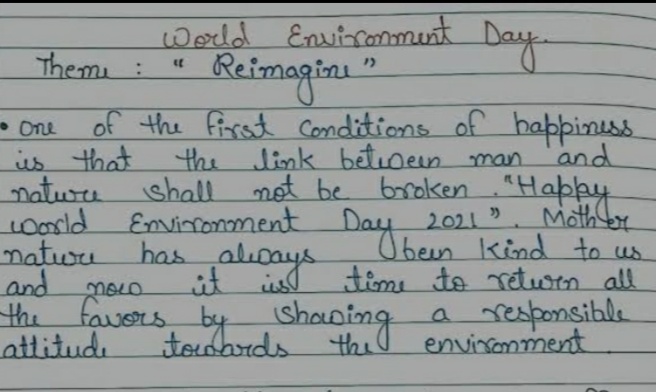 World Environment Day.
Theme : " Reimagine"
• One of the first conditions of happiness
is that the link between man and
nature shall not be broken. "Happy
World Environment Day 2021". Mother
nature has always been kind to us
and now it is time to return all
the favors by showing a responsible
attitude towards the environment